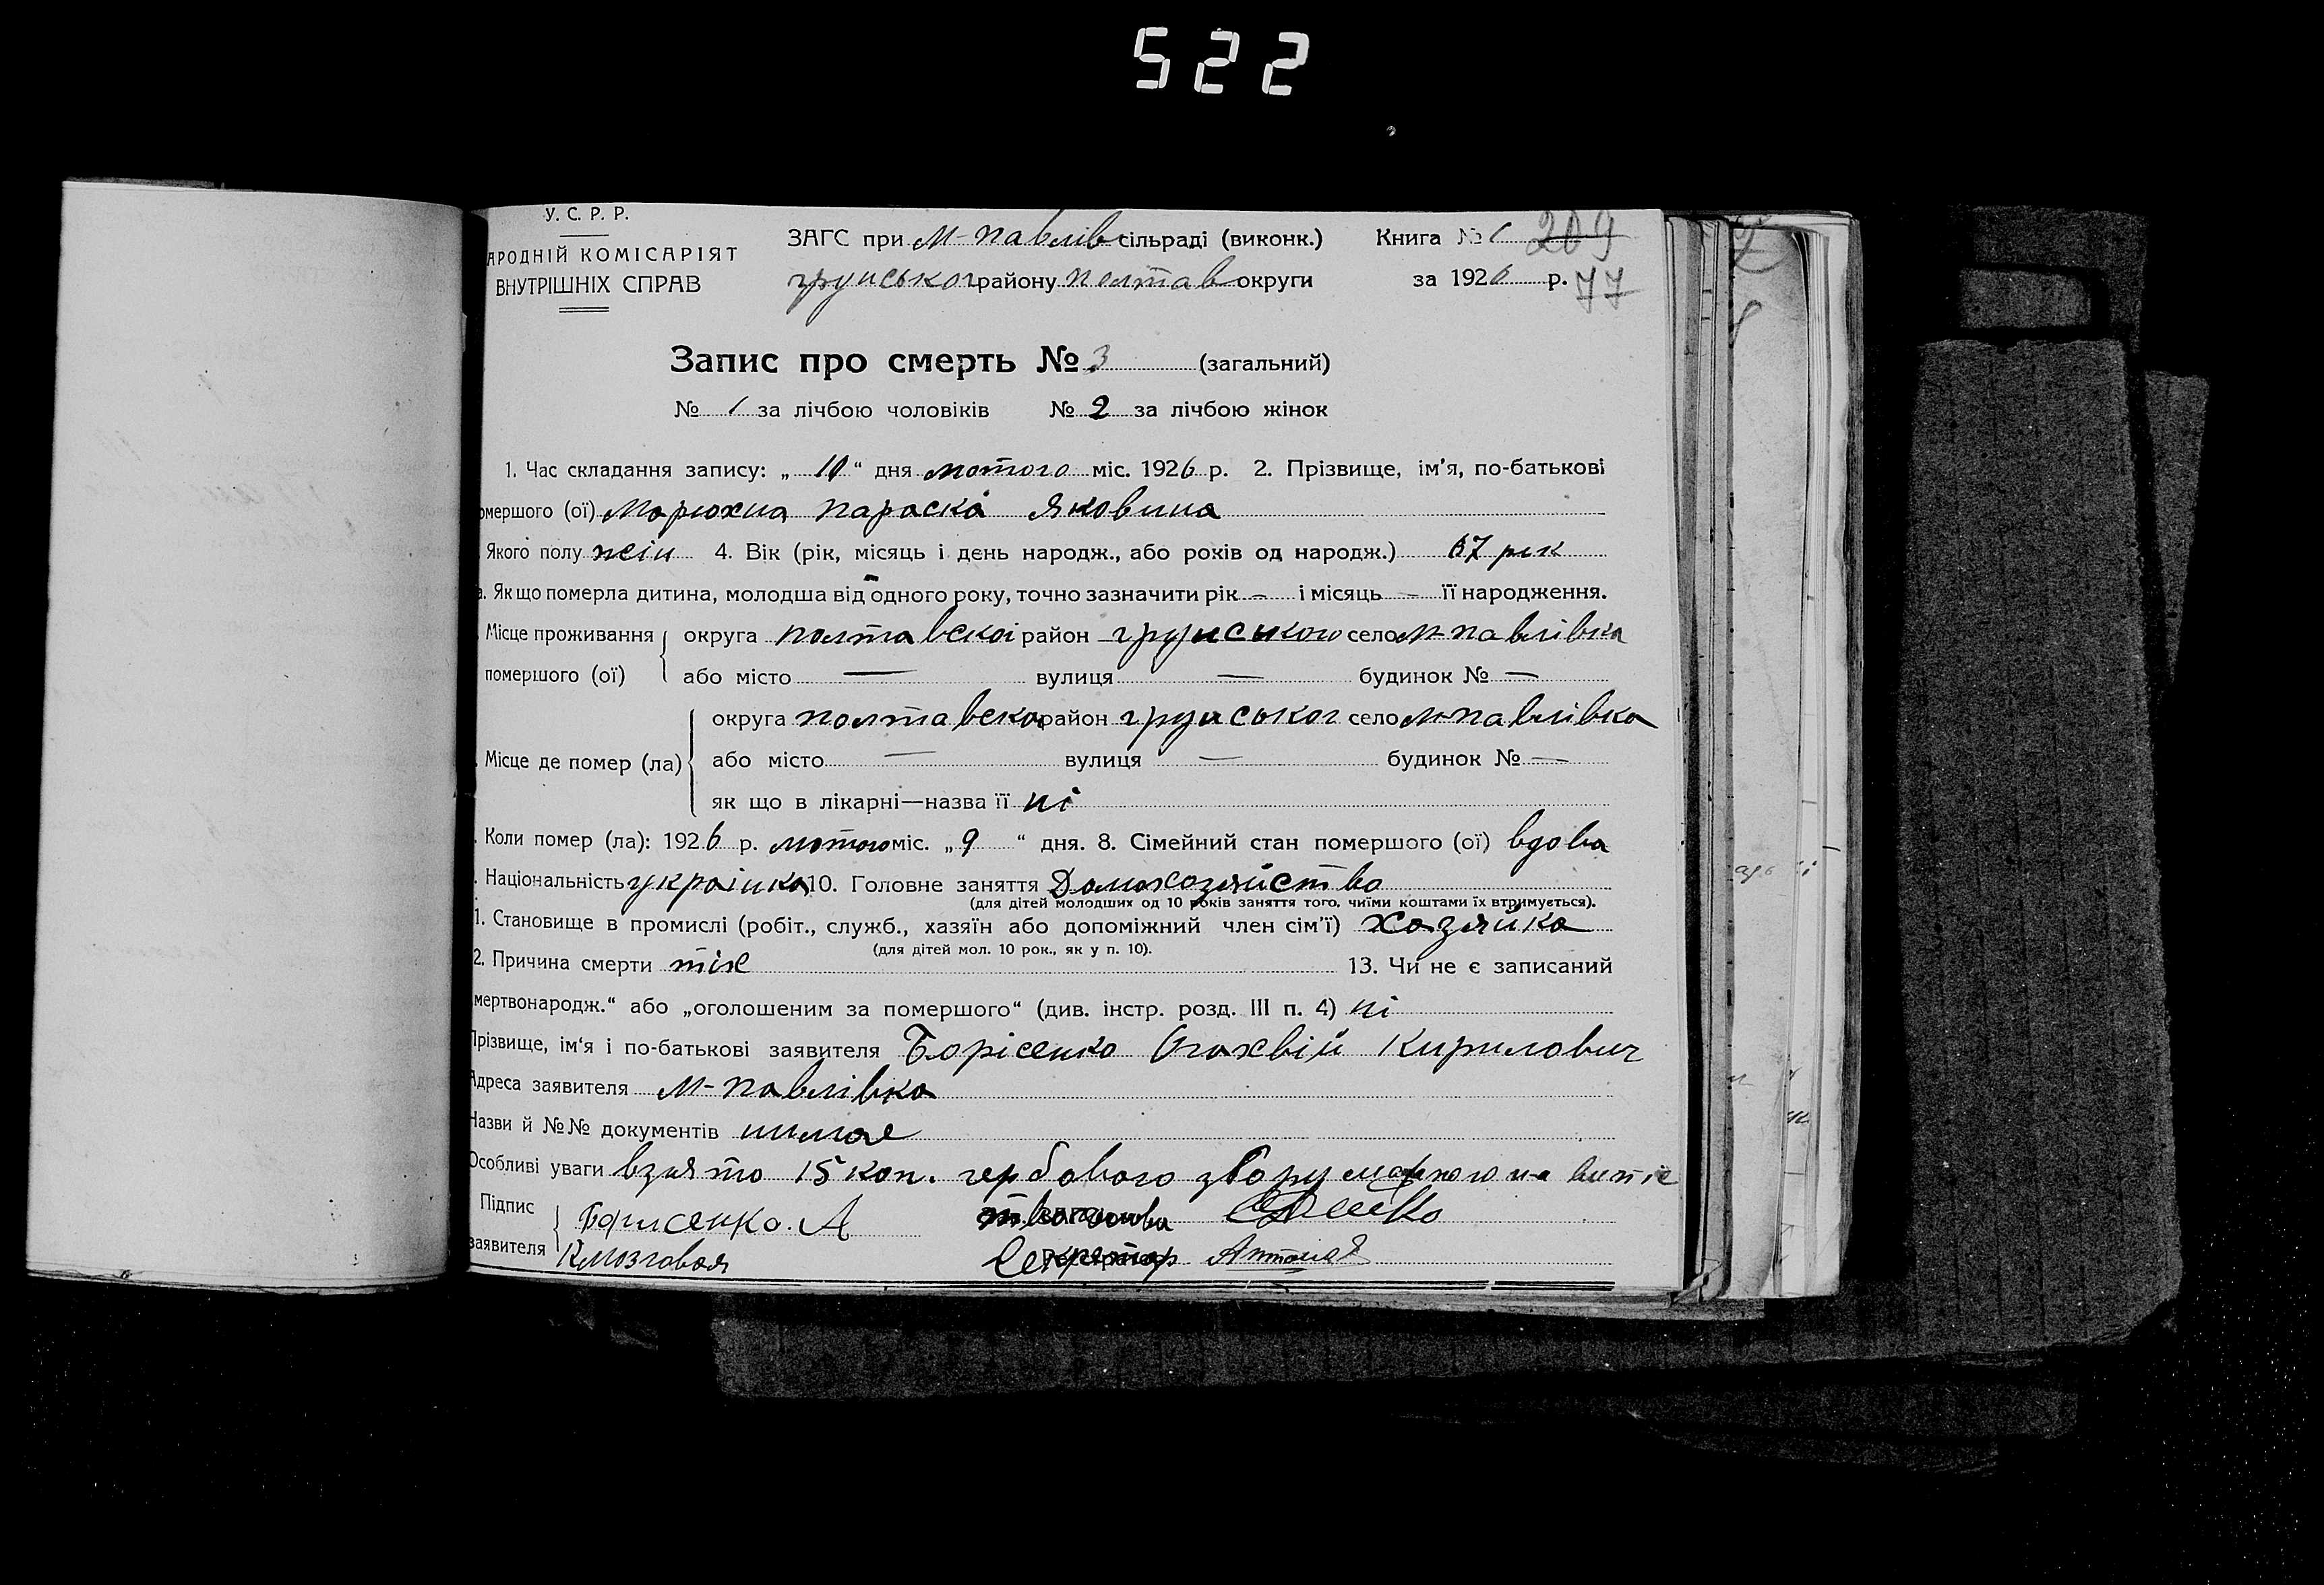 522
У. С. Р. Р.
АРОДНІЙ КОМІСАРІЯТ
ВНУТРІШНІХ СПРАВ
ЗАГС при М-павлів сільраді (виконк.) Книга № 1 209
грунськог району полтав округи за 1926 р. 77
Запис про смерть № 3 (загальний)
№ 1 за лічбою чоловіків № 2 за лічбою жінок
1. Час складання запису: „ 10 “ дня лютого міс. 1926 р. 2. Прізвище, ім'я, по-батькові
омершого (ої) Параска Яковина
Якого полу жін 4. Вік (рік, місяць і день народж., або років од народж.) 67 рік
а. Як що померла дитина, молодша від одного року, точно зазначити рік — і місяць — її народження.
Місце проживання округа полтавскої район грунського село М-павлівка
помершого (ої) або місто — вулиця — будинок № —
округа полтавског район грунськог село М-павлівка
Місце де помер (ла) або місто — вулиця — будинок № —
як що в лікарні—назва її ні
Коли помер (ла): 1926 р. лютого міс. „ 9 “ дня. 8. Сімейний стан помершого (ої) вдова
Національність украінка 10. Головне заняття Домохозяйство
(для дітей молодших од 10 років заняття того, чиїми коштами їх втримується).
1. Становище в промислі (робіт., служб., хазяїн або допоміжний член сім'ї) хозяйка
(для дітей мол. 10 рок., як у п. 10).
2. Причина смерти 13. Чи не є записаний
мертвонародж.“ або „оголошеним за помершого“ (див. інстр. розд. III п. 4) ні
Прізвище, ім'я і по-батькові заявителя Борісенко Огахвій Кирилович
Адреса заявителя М-павлівка
Назви й №№ документів нимає
Особливі уваги взято 15 коп. гербового збору
Підпис Борисенко. А
заявителя Кмозговая Секретар